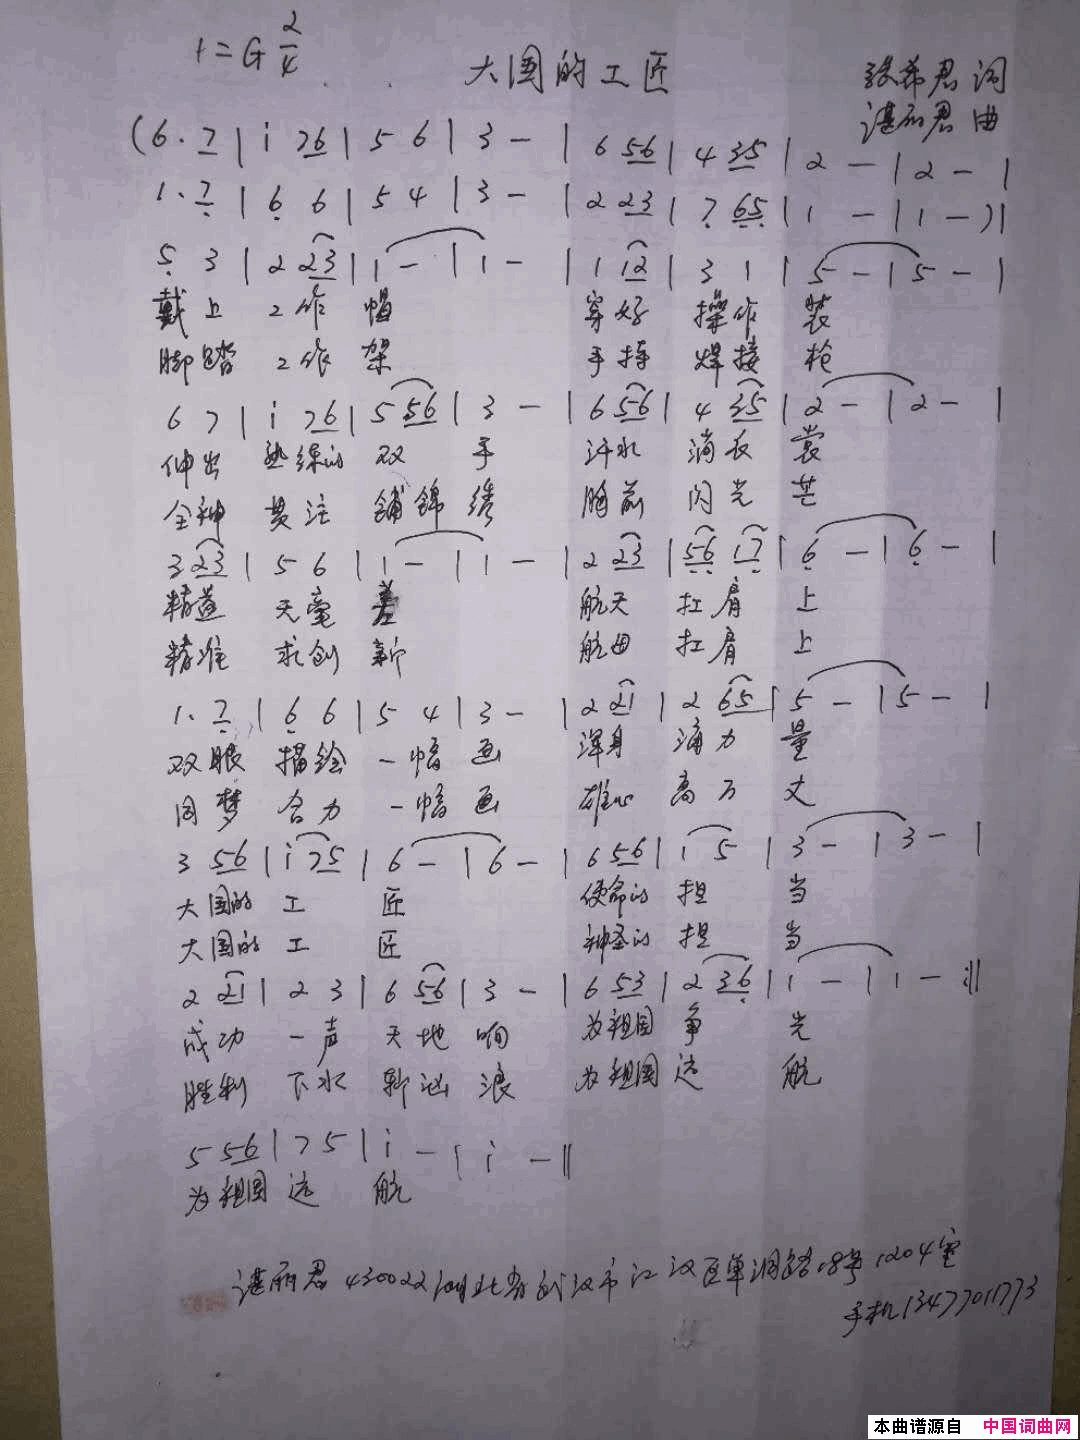 1=G 2/4
大国的工匠
张希君 词
谌丽君 曲
(6. 7 | i 76 | 5 6 | 3 - | 6 56 | 4 35 | 2 - | 2 - |
1. 7 | 6 6 | 5 4 | 3 - | 2 23 | 7 65 | 1 - | 1 - ) |
5 3 | 2 23 | 1 - | 1 - | 1 12 | 3 1 | 5 - | 5 - |
戴上 工作 帽 穿好 操作 装
脚踏 工作 架 手持 焊接 枪
6 7 | i 76 | 5 56 | 3 - | 6 56 | 4 35 | 2 - | 2 - |
伸出 熟练的 双 手 汗水 满衣 裳
全神 贯注 铺锦 绣 胸前 闪光 芒
3 23 | 5 6 | 1 - | 1 - | 2 23 | 56 17 | 6 - | 6 - |
精益 无毫 差 航天 扛肩 上
精准 求创 新 航母 扛肩 上
1. 7 | 6 6 | 5 4 | 3 - | 2 21 | 2 65 | 5 - | 5 - |
双眼 描绘 一幅 画 浑身 涌力 量
同梦 合力 一幅 画 雄心 高万 丈
3 56 | i 75 | 6 - | 6 - | 6 56 | i 5 | 3 - | 3 - |
大国的 工 匠 使命的 担 当
大国的 工 匠 神圣的 担 当
2 21 | 2 3 | 6 56 | 3 - | 6 53 | 2 36 | 1 - | 1 - :||
成功 一声 天地 响 为祖国 争 光
胜利 下水 斩汹 浪 为祖国 远 航
5 56 | 7 5 | i - | i - ||
为祖国 远 航
谌丽君 430022 湖北省武汉市江汉区单洞路18号1204室
手机13477011773
本曲谱源自 中国词曲网